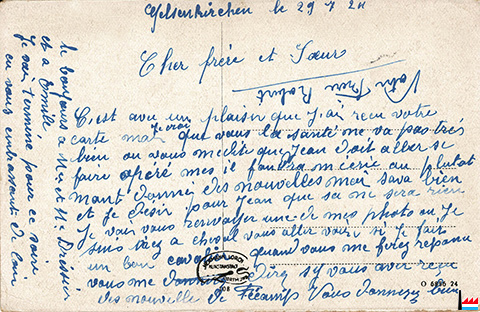 Gelsenkirchen le 29 7 24
Cher frère et Sœur
Votre Frère Robert
C'est avec un plaisir que J'ai reçu votre
carte mai Je vrai que vous la santé me va pas très
bien ou vous me dite que Jean doit aller se
faire opéré mes il faudra m'écrire au plutot
mant donner des nouvelles mai sava bien
et Je désir pour Jean que sa ne sera rien
Je vai vous renvoyer une de mes photo ou Je
suis a cheval vous aller voir si Je fait
un bon cavalier quand vous me ferez reponse
vous me donnerez si vous avez reçu
des nouvelle de Fécamp Vous donnerez bien
le bonjours a Mr et Me
et a Emile
Je vai terminé pour ce soire
en vous embrassant de loin
O 6895 24